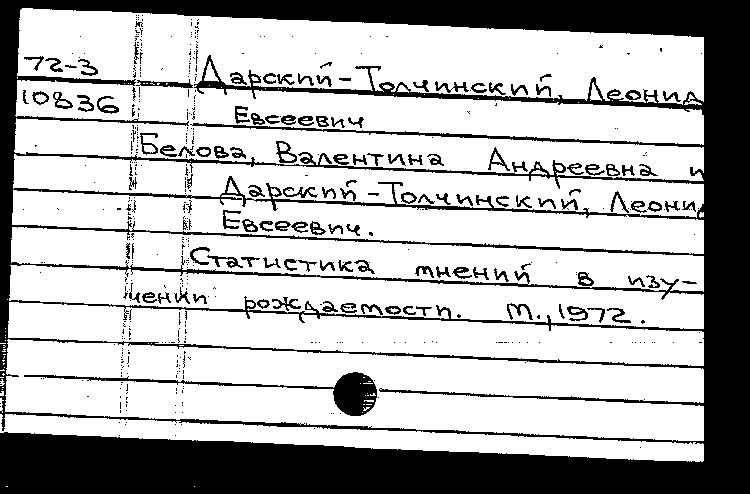 72-3 Дарский-Толчинский, Леонид
10836 Евсеевич
Белова, Валентина Андреевна и
Дарский-Толчинский, Леонид
Евсеевич.
Статистика мнений в изу-
чении рождаемости. М., 1972.